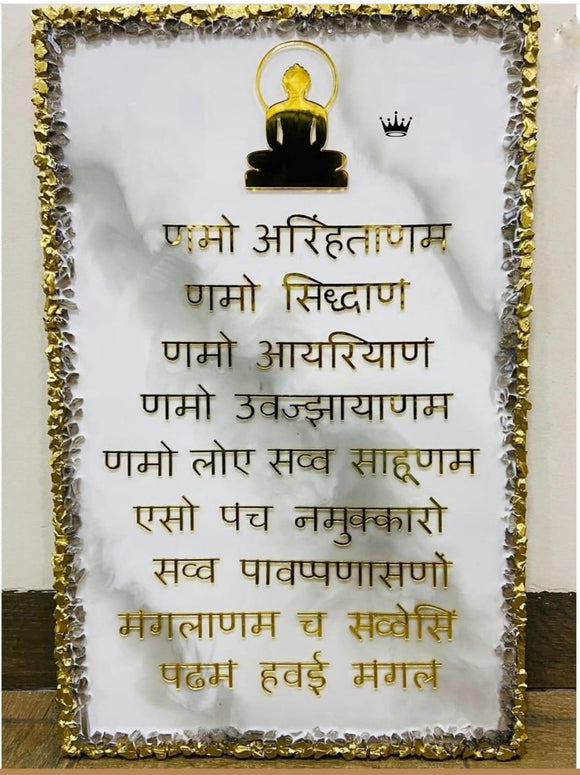 णमो अरिंहताणम
णमो सिद्धाणं
णमो आयरियाणं
णमो उवज्झायाणम
णमो लोए सव्व साहूणम
एसो पंच नमुक्कारो
सव्व पावप्पणासणों
मंगलाणम च सव्वेसिं
पढमं हवई मंगलं